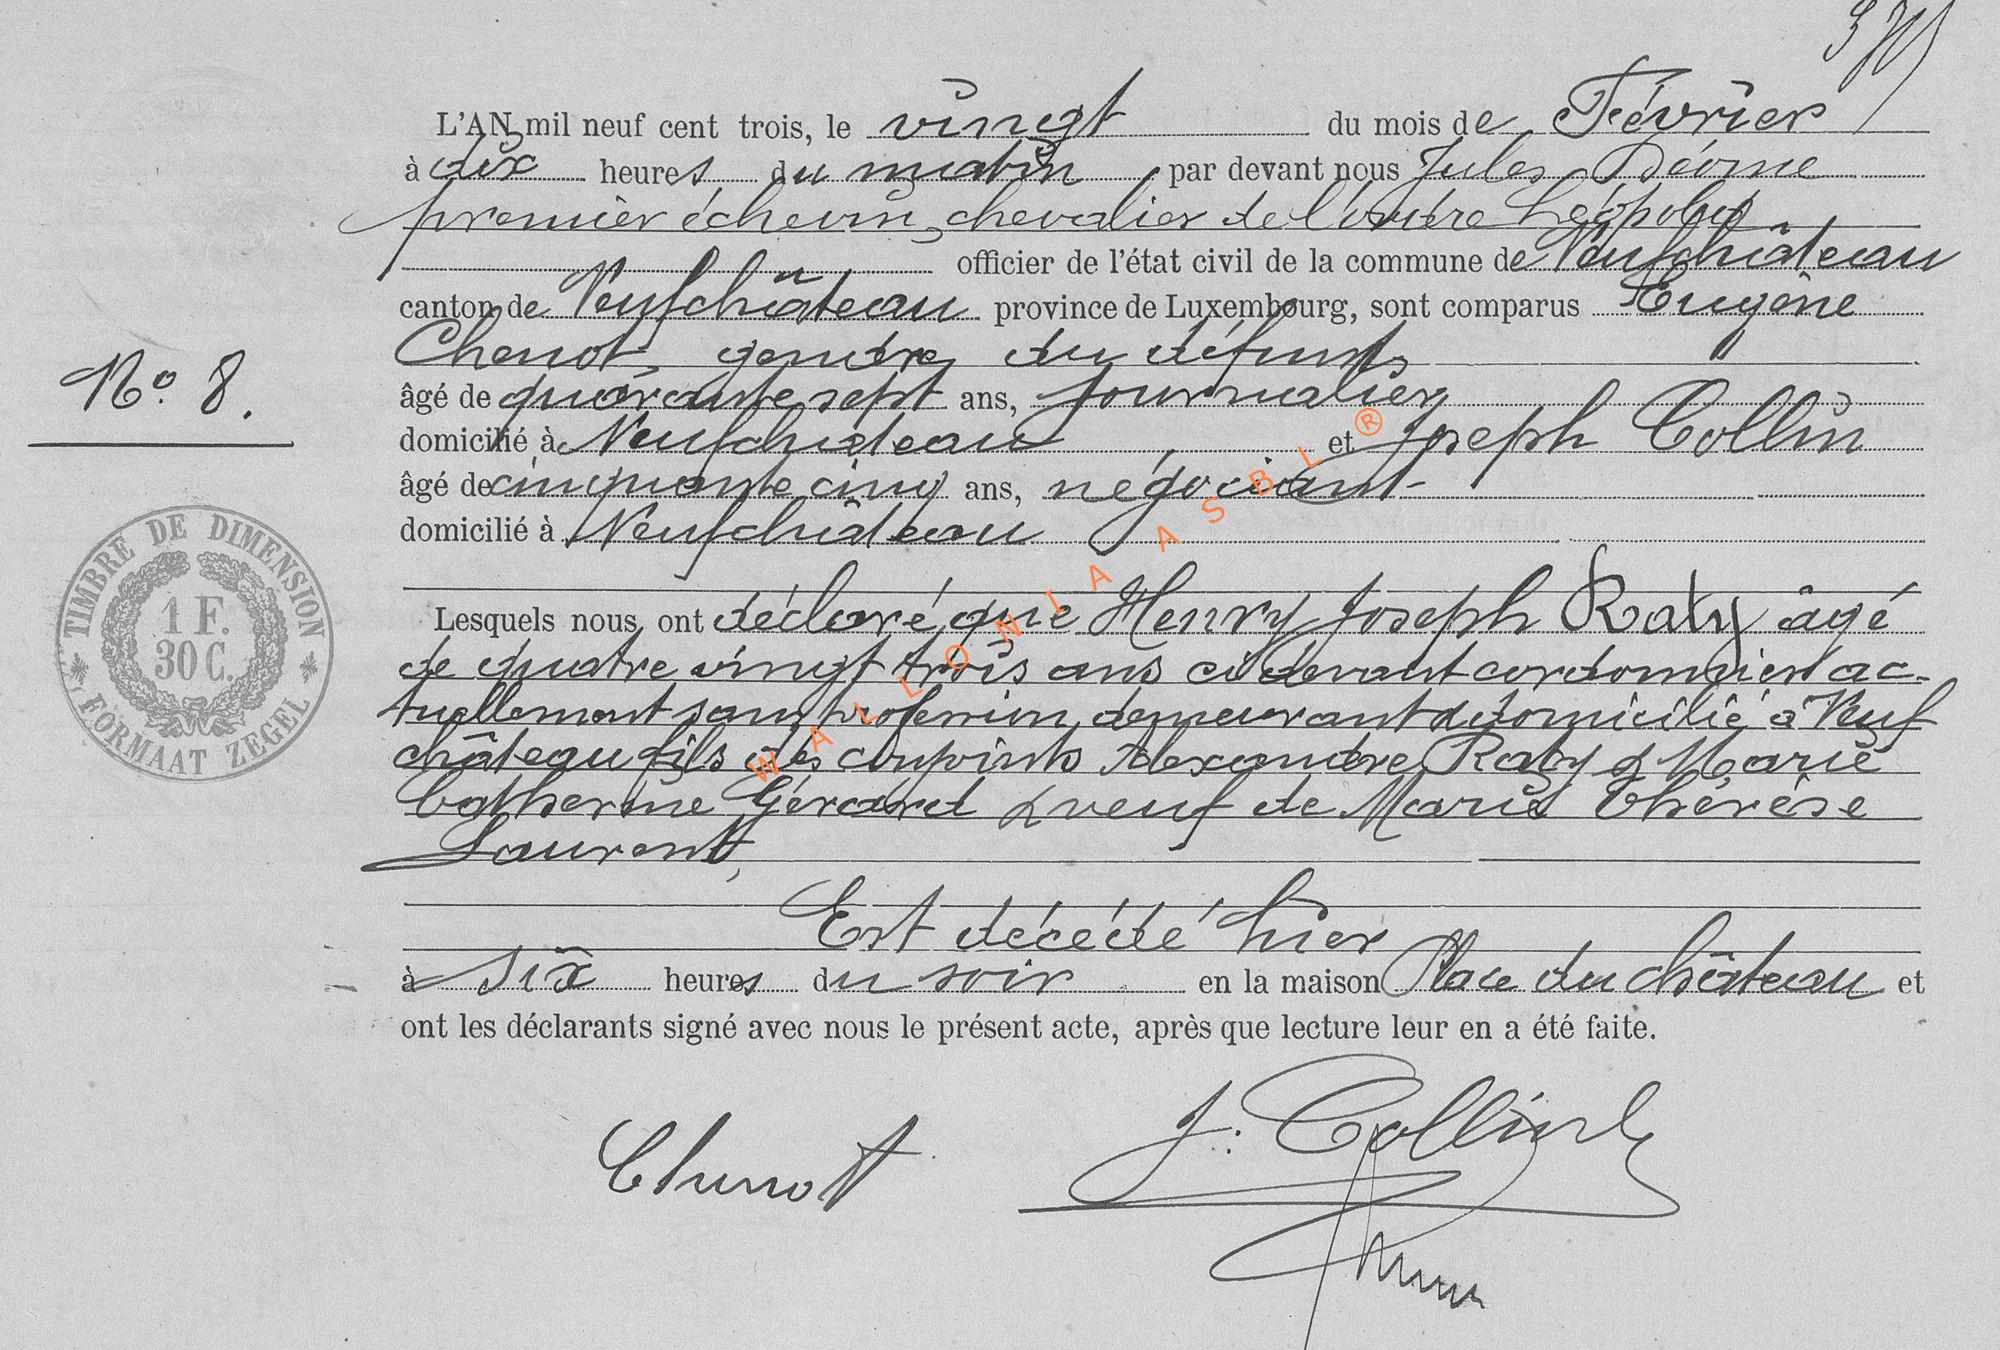 L'AN mil neuf cent trois, le vingt du mois de Février
à dix heures du matin par devant nous Jules
premier échevin, chevalier de l'ordre Léopold
officier de l'état civil de la commune de Neufchâteau
canton de Neufchâteau province de Luxembourg, sont comparus Eugène
Chenot, gendre du défunt,
No. 8.
âgé de quarante sept ans, journalier
domicilié à Neufchâteau et Joseph Collin
âgé de cinquante cinq ans, négociant
domicilié à Neufchâteau
Lesquels nous ont déclaré que Henry Joseph Raty âgé
de quatre vingt trois ans ci devant cordonnier ac-
tuellement sans profession, demeurant & domicilié à Neuf
château fils des conjoints Alexandre Raty & Marie
Catherine Gérard & veuf de Marie Thérèse
Laurent,
Est décédé hier
à six heures du soir en la maison Place du château et
ont les déclarants signé avec nous le présent acte, après que lecture leur en a été faite.
Chenot
J. Collin
TIMBRE DE DIMENSION
1 F.
30 C.
FORMAAT ZEGEL
WALLONIA ASBL ®